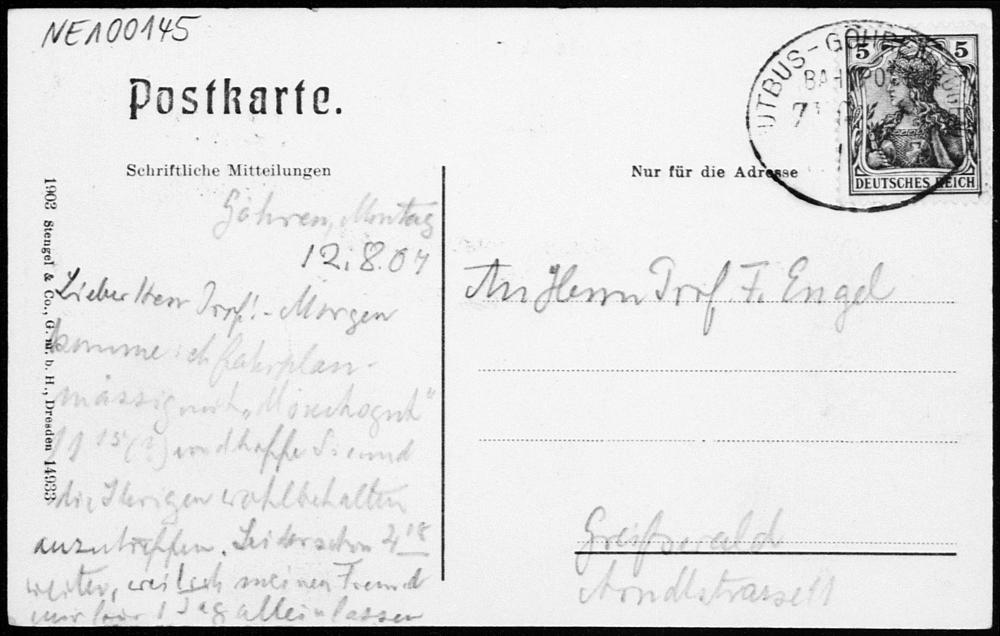 NE100145
Postkarte.
Schriftliche Mitteilungen
Nur für die Adresse
UTBUS-GÖHREN
BAHNPOST
5 5
DEUTSCHES REICH
1902 Stengel & Co., G. m. b. H., Dresden 14933
Göhren, Montag
12.8.07
Lieber Herr Prof! - Morgen
komme ich fahrplan-
mässig mit
11 15 (?) und hoffe Sie und
die Ihrigen wohlbehalten
anzutreffen. Leider schon 4 18
weiter, weil ich meinen Freund
nur für 1 Tag allein lassen
An Herrn Prof. F. Engel
Greifswald
Arndtstrasse 11